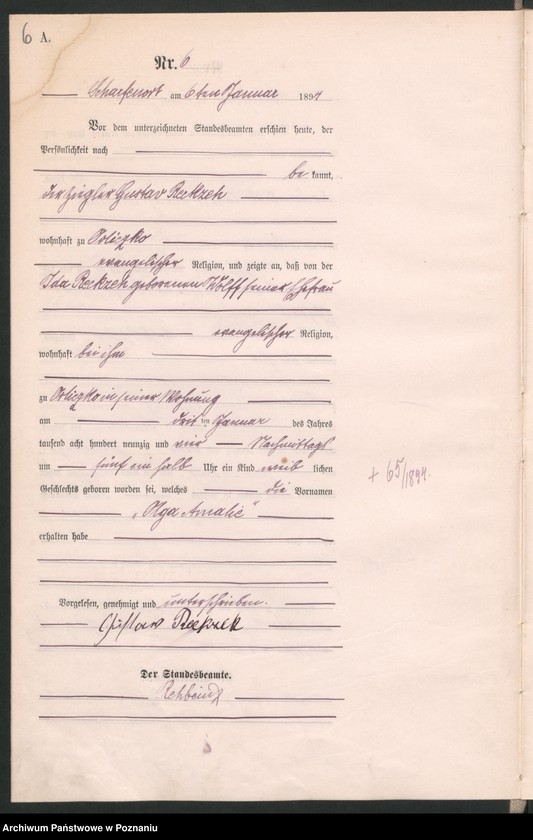 6 A.
Nr. 6
Scharfenort am 6ten Januar 1894
Vor dem unterzeichneten Standesbeamten erschien heute, der
Persönlichkeit nach
be kannt,
der Ziegler Gustav Reekzeh
wohnhaft zu
evangelischer Religion, und zeigte an, daß von der
Ida Reekzeh geborenen Wolff seiner Ehefrau
evangelischer Religion,
wohnhaft bei ihm
zu in seiner Wohnung
am ten Januar des Jahres
tausend acht hundert neunzig und vier Nachmittags
um fünf ein halb Uhr ein Kind weib lichen
Geschlechts geboren worden sei, welches die Vornamen
„Olga Amalie“
erhalten habe
+ 65/1894.
Vorgelesen, genehmigt und unterschrieben.
Gustav Reekzeh
Der Standesbeamte.
Rehbein
Archiwum Państwowe w Poznaniu